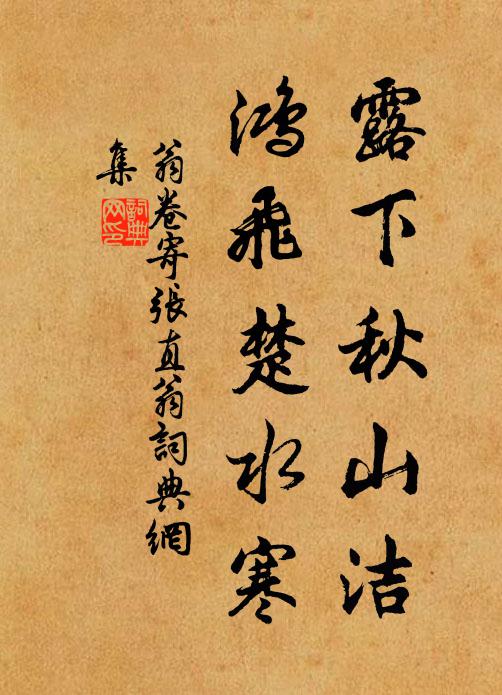 露下秋山洁
鸿飛楚水寒
翁卷寄張直翁詞典網
集
詞典網印